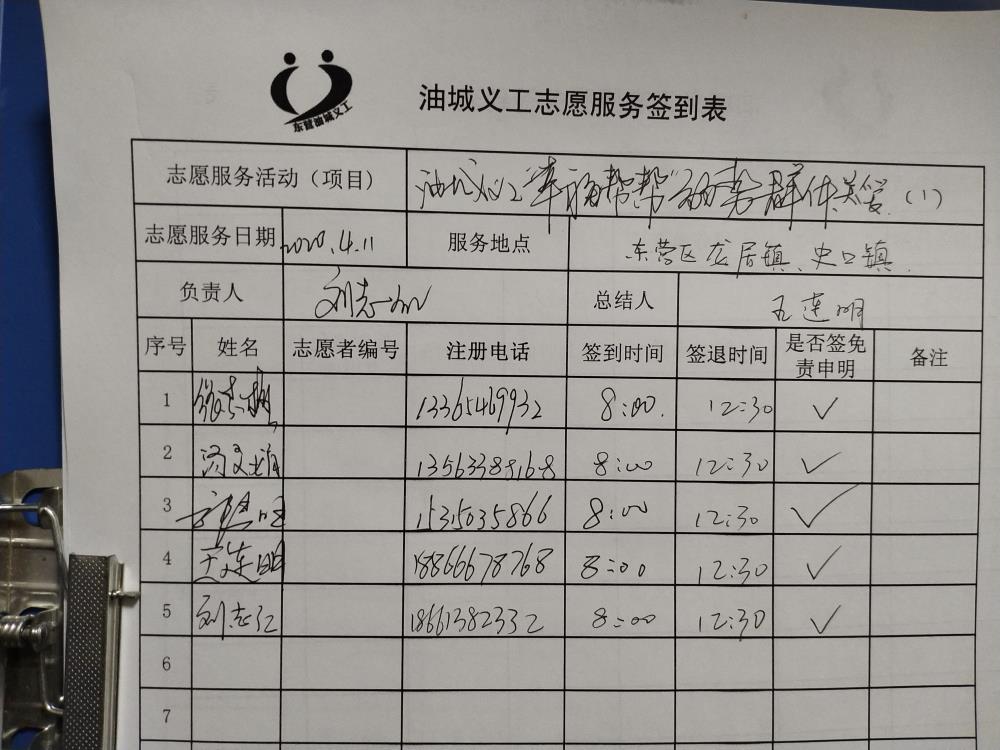 东营油城义工
油城义工志愿服务签到表
志愿服务活动（项目） 油城义工"幸福帮帮" 群体关爱（1）
志愿服务日期 2020.4.11 服务地点 东营区龙居镇、史口镇
负责人 刘志红 总结人 王连明
序号 姓名 志愿者编号 注册电话 签到时间 签退时间 是否签免责申明 备注
1 13365469932 8:00. 12:30 ✓
2 8:00 12:30 ✓
3 15315035866 8:00 12:30 ✓
4 王连明 18866678768 8:00 12:30 ✓
5 刘志红 18661382332 8:00 12:30 ✓
6
7